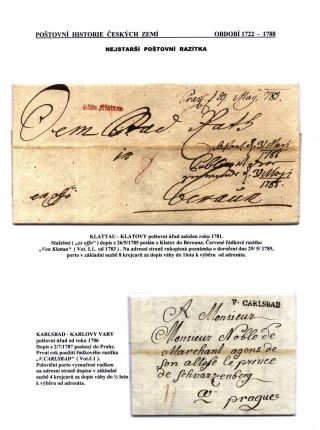 POŠTOVNÍ HISTORIE ČESKÝCH ZEMÍ OBDOBÍ 1722 - 1788
NEJSTARŠÍ POŠTOVNÍ RAZÍTKA
Von Klattau
Dem
in
ex offo
Beraun
KLATTAU - KLATOVY poštovní úřad založen roku 1781.
Služební ( „ex offo" ) dopis z 26/5/1785 poslán z Klatov do Berouna. Červené řádkové razítko
„Von Klattau" ( Vot. č.1, od 1783 ). Na adresní straně rukopisná poznámka o doručení dne 29/ 5/ 1785,
porto v základní sazbě 8 krejcarů za dopis váhy do 1lotu k výběru od adresáta.
KARLSBAD - KARLOVY VARY
poštovní úřad od roku 1706
Dopis z 2/7/1787 poslaný do Prahy.
První rok použití řádkového razítka
„V.CARLSBAD" (Vot.č.1 ).
Poloviční porto vyznačené rudkou
na adresní straně dopisu v základní
sazbě 4 krejcarů za dopis váhy do ½ lotu
k výběru od adresáta.
V· CARLSBAD
A Monsieur
Monsieur Noble de
Marchant agens de
son altesse le prince
de schwarzenberg
prague